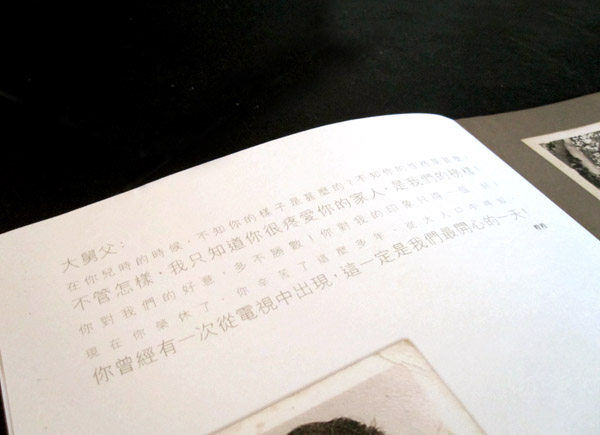 大舅父：
在你兒時的時候，不知你的樣子是甚麼的？不知你的性格是甚麼？
不管怎樣，我只知道你很疼愛你的家人，是我們的榜樣！
你對我們的好意，多不勝數！你對我的印象只得一個「好！
現在你榮休了，你辛苦了這麼多年，從大人口中得知
你曾經有一次從電視中出現，這一定是我們最開心的一天！